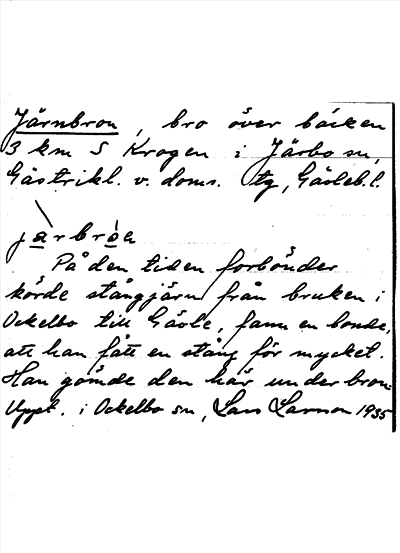 Järnbron, bro över bäcken
3 km S Krogen i Järbo sn,
Gästrikl. v. doms. tg, Gävleb. l.
jarbròn
På den tiden forbönder
körde stångjärn från bruken i
Ockelbo till Gävle, fann en bonde,
att han fått en stång för mycket.
Han gömde den här under bron.
Uppt. i Ockelbo sn, Lars Larsson 1935